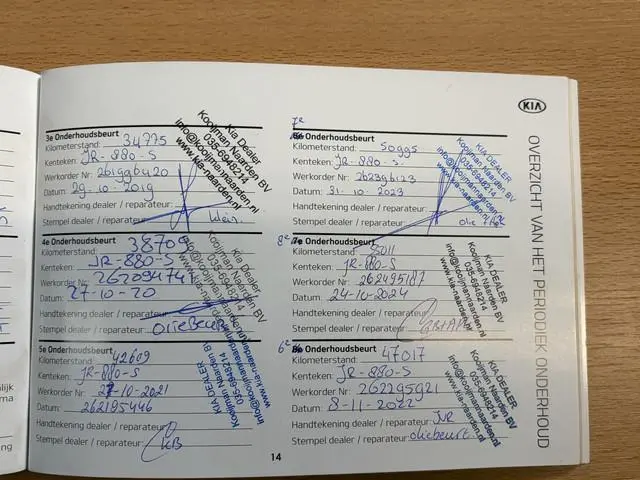 KIA
OVERZICHT VAN HET PERIODIEK ONDERHOUD
3e Onderhoudsbeurt
Kilometerstand: 34775
Kenteken: JR-880-S
Werkorder Nr: 261996420
Datum: 29-10-2019
Handtekening dealer / reparateur:
Stempel dealer / reparateur: klein.
Kia Dealer
Kooijman Naarden BV
035-6948214
info@kooijmannaarden.nl
www.kia-naarden.nl
4e Onderhoudsbeurt
Kilometerstand: 38709
Kenteken: JR-880-S
Werkorder Nr: 26209474
Datum: 27-10-20
Handtekening dealer / reparateur:
Stempel dealer / reparateur: OLIEBEURT
Kia Dealer
Kooijman Naarden BV
035-6948214
5e Onderhoudsbeurt
Kilometerstand: 42609
Kenteken: JR-880-S
Werkorder Nr: 27-10-2021
Datum: 262195446
Handtekening dealer / reparateur:
Stempel dealer / reparateur: KB
KIA DEALER
Kooijman Naarden BV
035-6948214
info@kooijmannaarden.nl
www.kia-naarden.nl
7e
Onderhoudsbeurt
Kilometerstand: 50995
Kenteken: JR-880-S.
Werkorder Nr:
Datum: 31-10-2023
Handtekening dealer / reparateur:
Stempel dealer / reparateur: olie
KIA DEALER
Kooijman Naarden BV
035-6948214
info@kooijmannaarden.nl
www.kia-naarden.nl
8e
7e Onderhoudsbeurt
Kilometerstand: 55011
Kenteken: JR-880-S
Werkorder Nr: 262495187
Datum: 24-10-2024
Handtekening dealer / reparateur:
Stempel dealer / reparateur:
KIA DEALER
Kooijman Naarden BV
035-6948214
info@kooijmannaarden.nl
www.kia-naarden.nl
6e
Onderhoudsbeurt
Kilometerstand: 47017
Kenteken: JR-880-S
Werkorder Nr: 262295921
Datum: 8-11-2022
Handtekening dealer / reparateur: JVR
Stempel dealer / reparateur: oliebeurt.
KIA DEALER
Kooijman Naarden BV
035-6948214
info@kooijmannaarden.nl
www.kia-naarden.nl
14